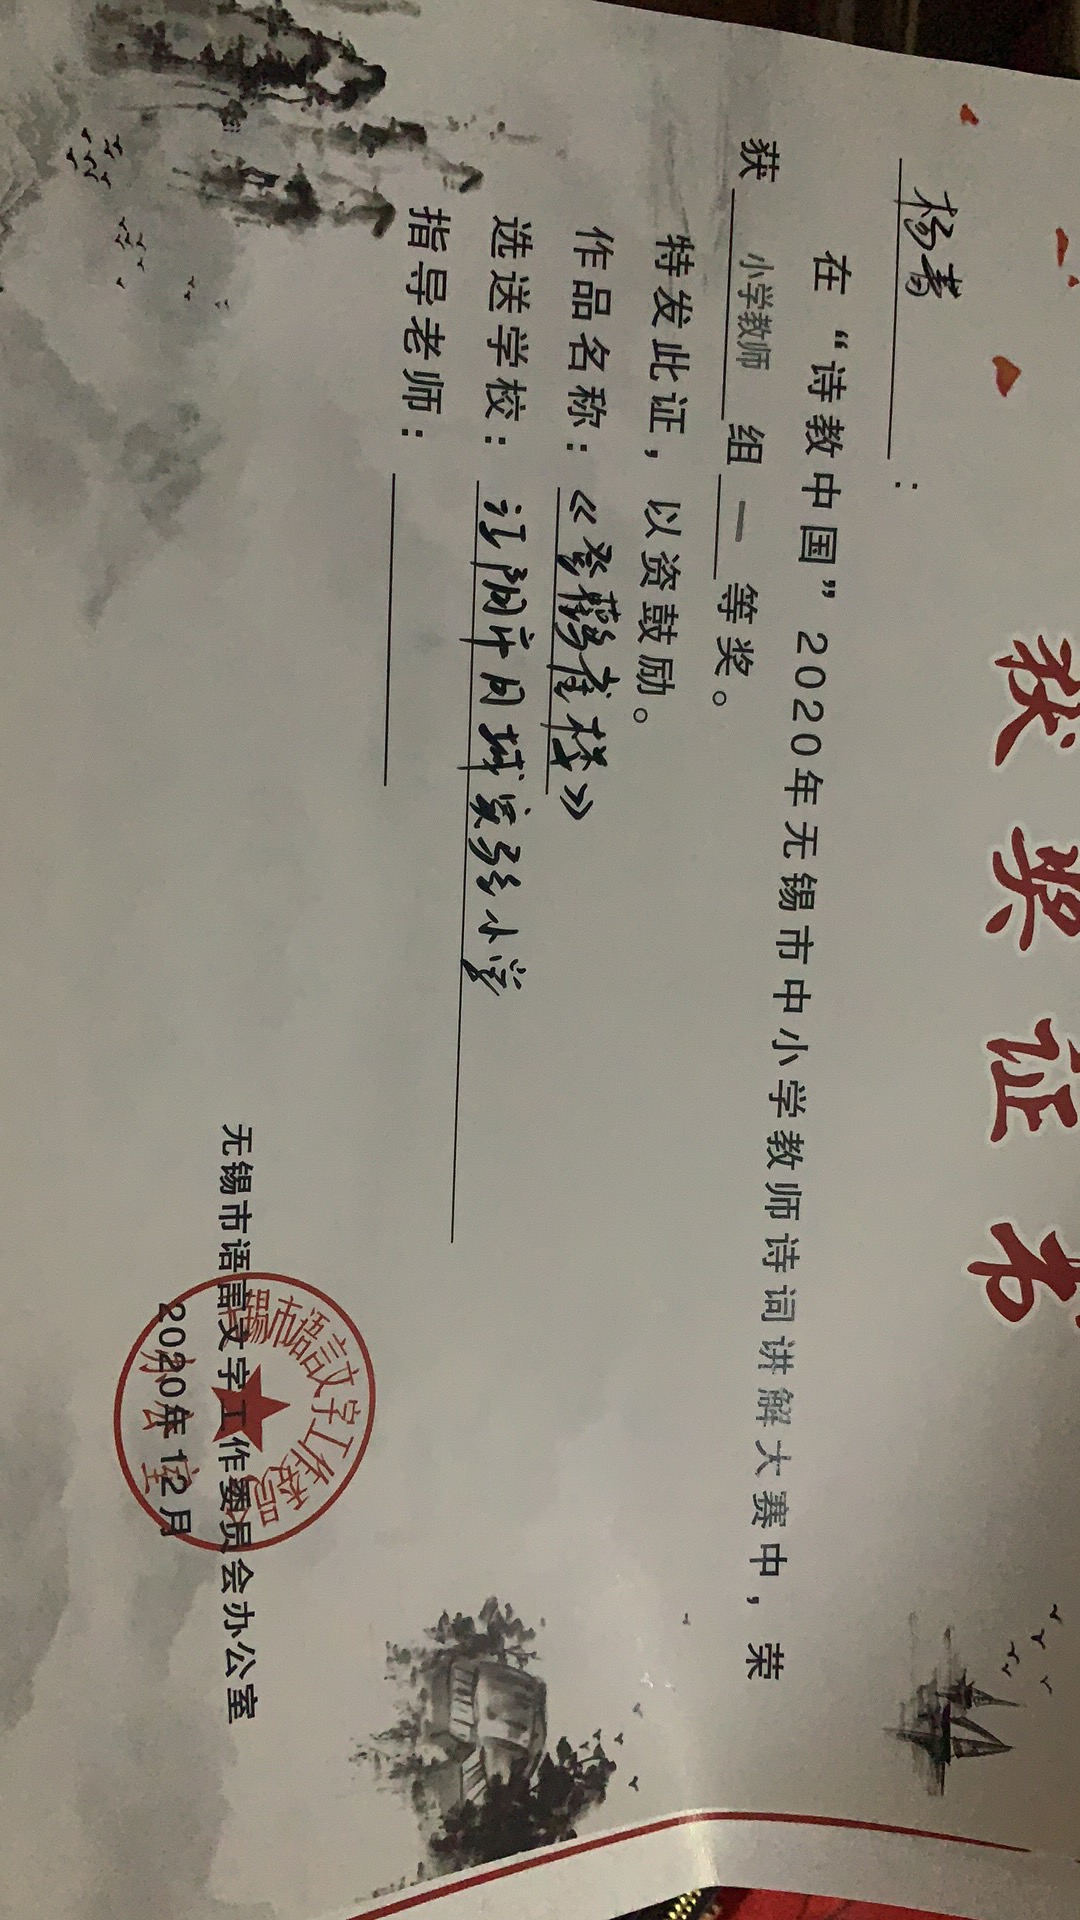 获奖证书
杨青：
在“诗教中国”2020年无锡市中小学教师诗词讲解大赛中，荣
获 小学教师 组 一 等奖。
特发此证，以资鼓励。
作品名称：《登鹳雀楼》
选送学校：江阴市月城实验小学
指导老师：
无锡市语言文字工作委员会办公室
2020年12月
锡市语言文字工作委员
办公室